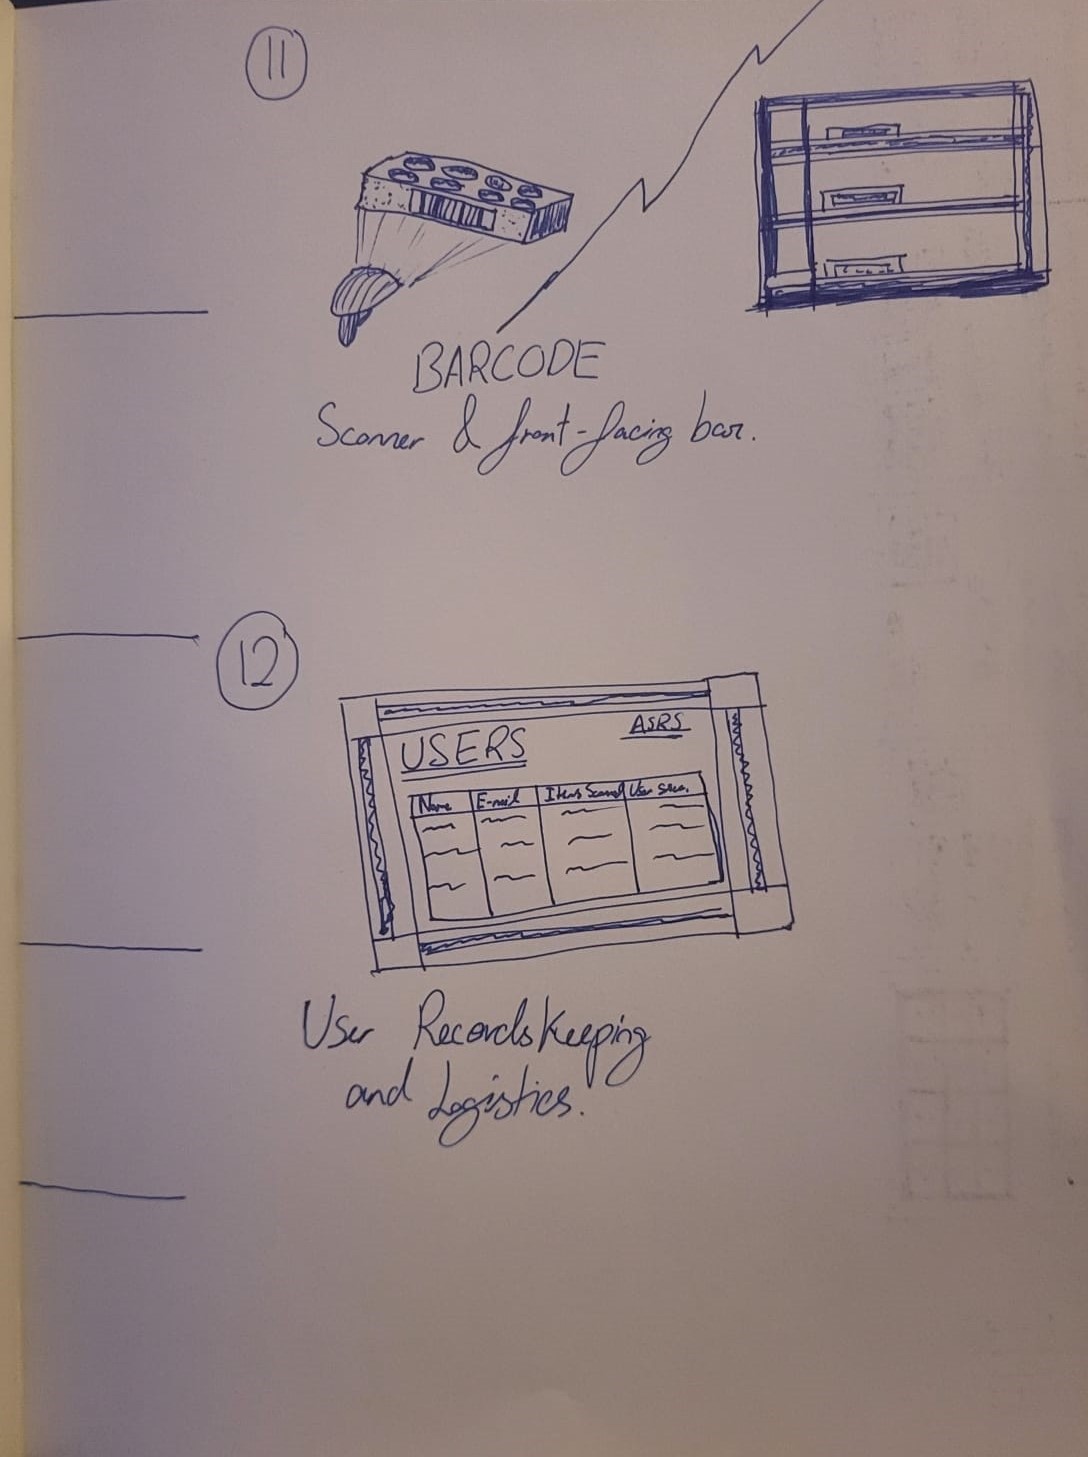 11
BARCODE
Scanner & front-facing bar.
12
USERS
ASRS
Name E-mail Items Scanned User
User Recordskeeping
and Logistics.